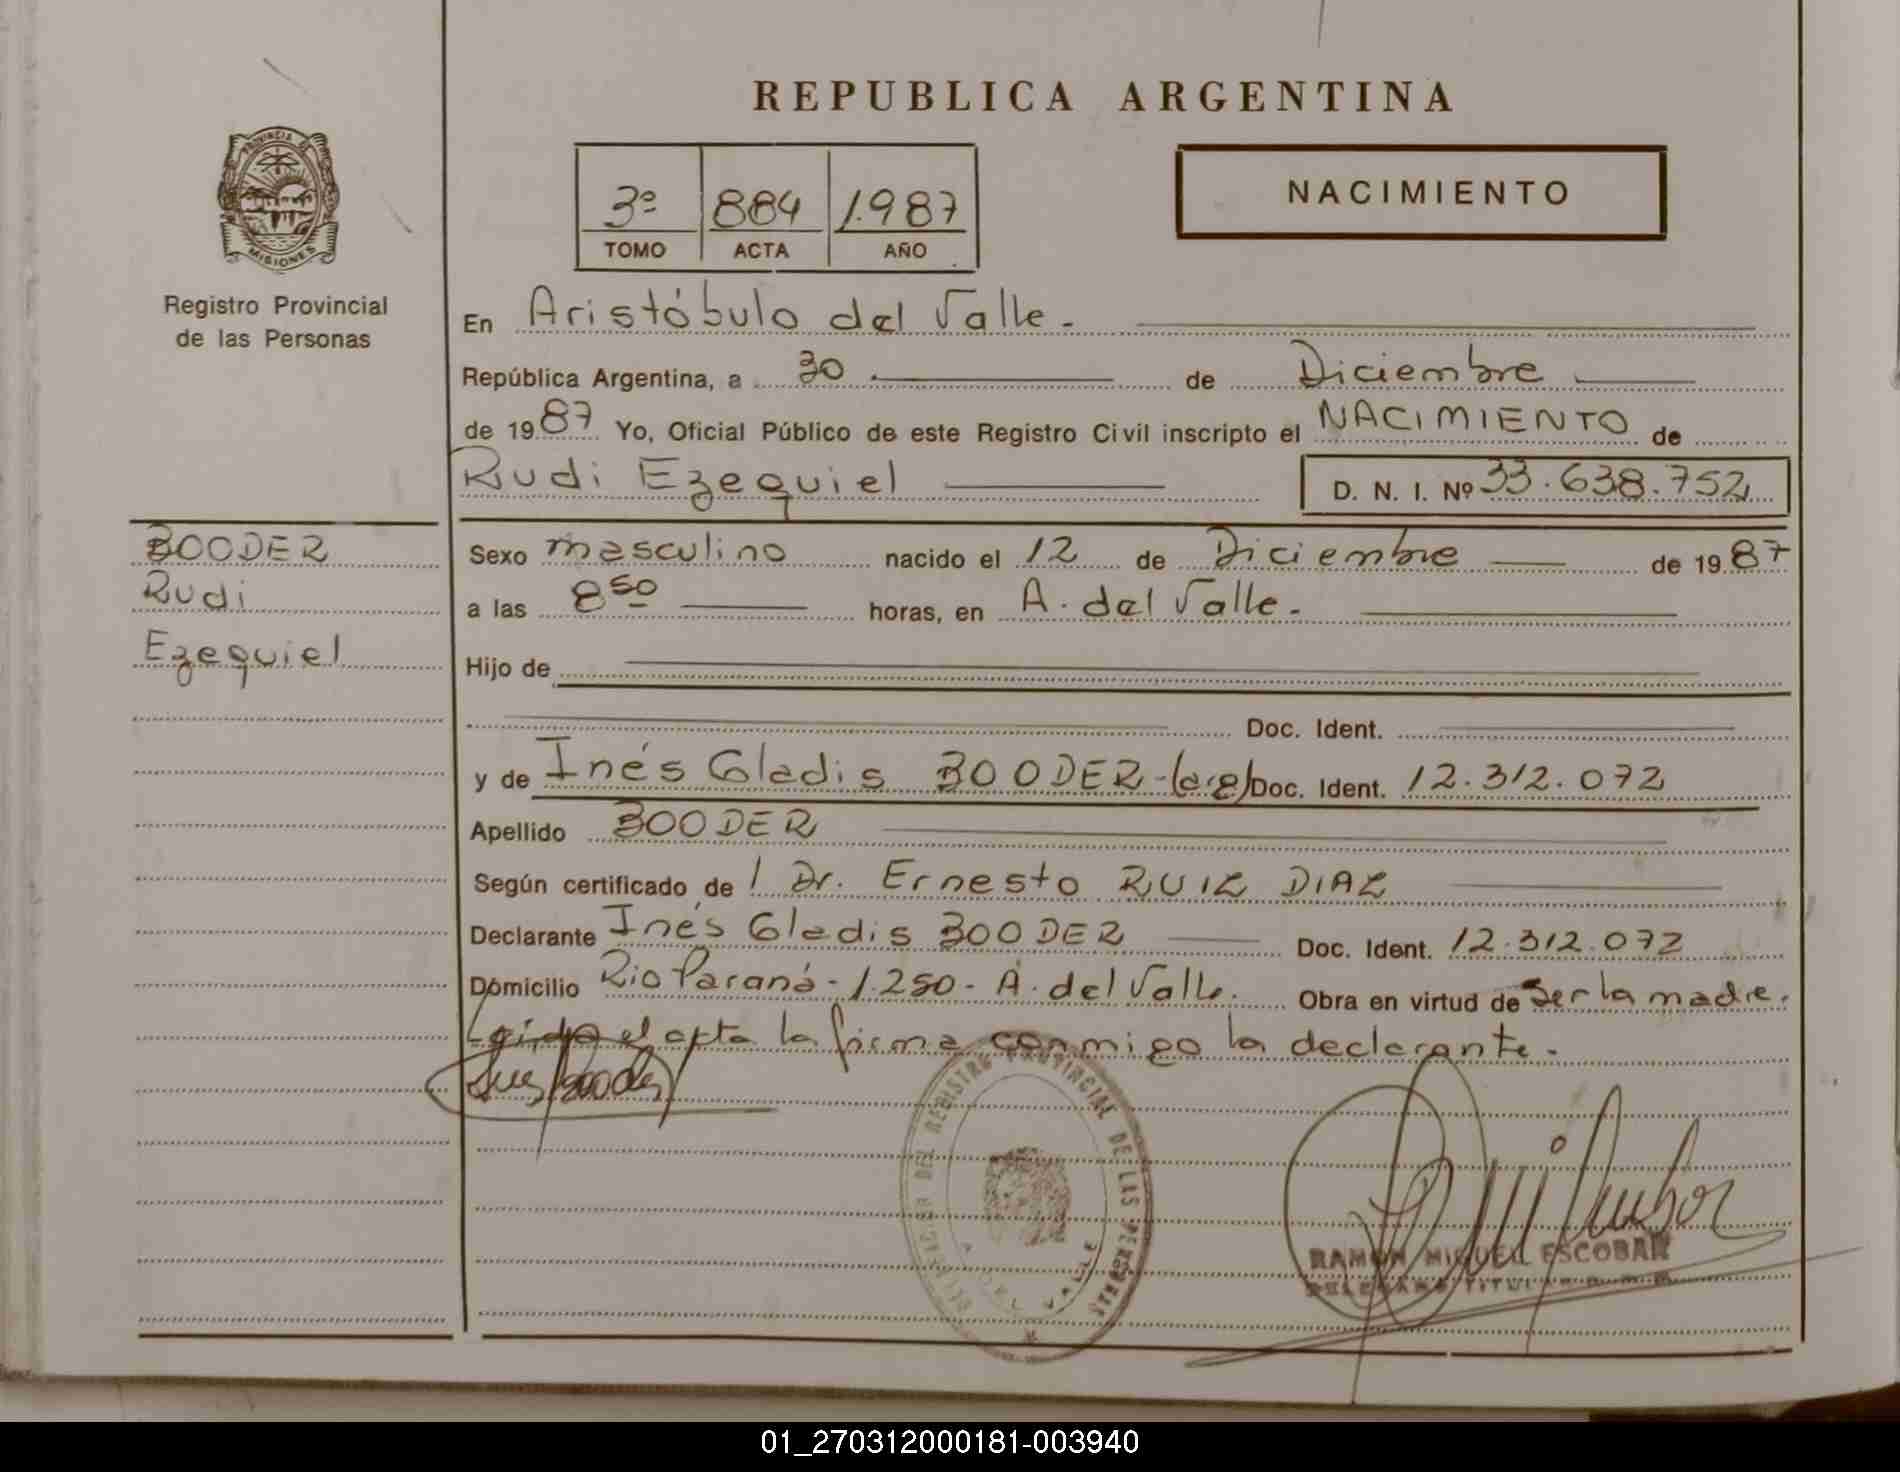 REPUBLICA ARGENTINA
PROVINCIA DE
MISIONES
Registro Provincial
de las Personas
3º 884 1.987
TOMO ACTA AÑO
NACIMIENTO
En Aristóbulo del Valle.
República Argentina, a 30 de Diciembre
de 1987 Yo, Oficial Público de este Registro Civil inscripto el NACIMIENTO de
Rudi Ezequiel D. N. I. Nº 33.638.752
BOODER
Rudi
Ezequiel
Sexo masculino nacido el 12 de Diciembre de 1987
a las 8 50 horas, en A. del Valle.
Hijo de
Doc. Ident.
y de Inés Gladis BOODER-(arg) Doc. Ident. 12.312.072
Apellido BOODER
Según certificado de l Dr. Ernesto RUIZ DIAZ
Declarante Inés Gladis BOODER Doc. Ident. 12.312.072
Domicilio Rio Paraná - 1.250 - A. del Valle. Obra en virtud de ser la madre.
Leida el acta la firma conmigo la declarante.
DELEGACION DEL REGISTRO PROVINCIAL DE LAS PERSONAS
A. DEL VALLE
RAMON MIGUEL ESCOBAR
DELEGADO TITULAR
01_270312000181-003940